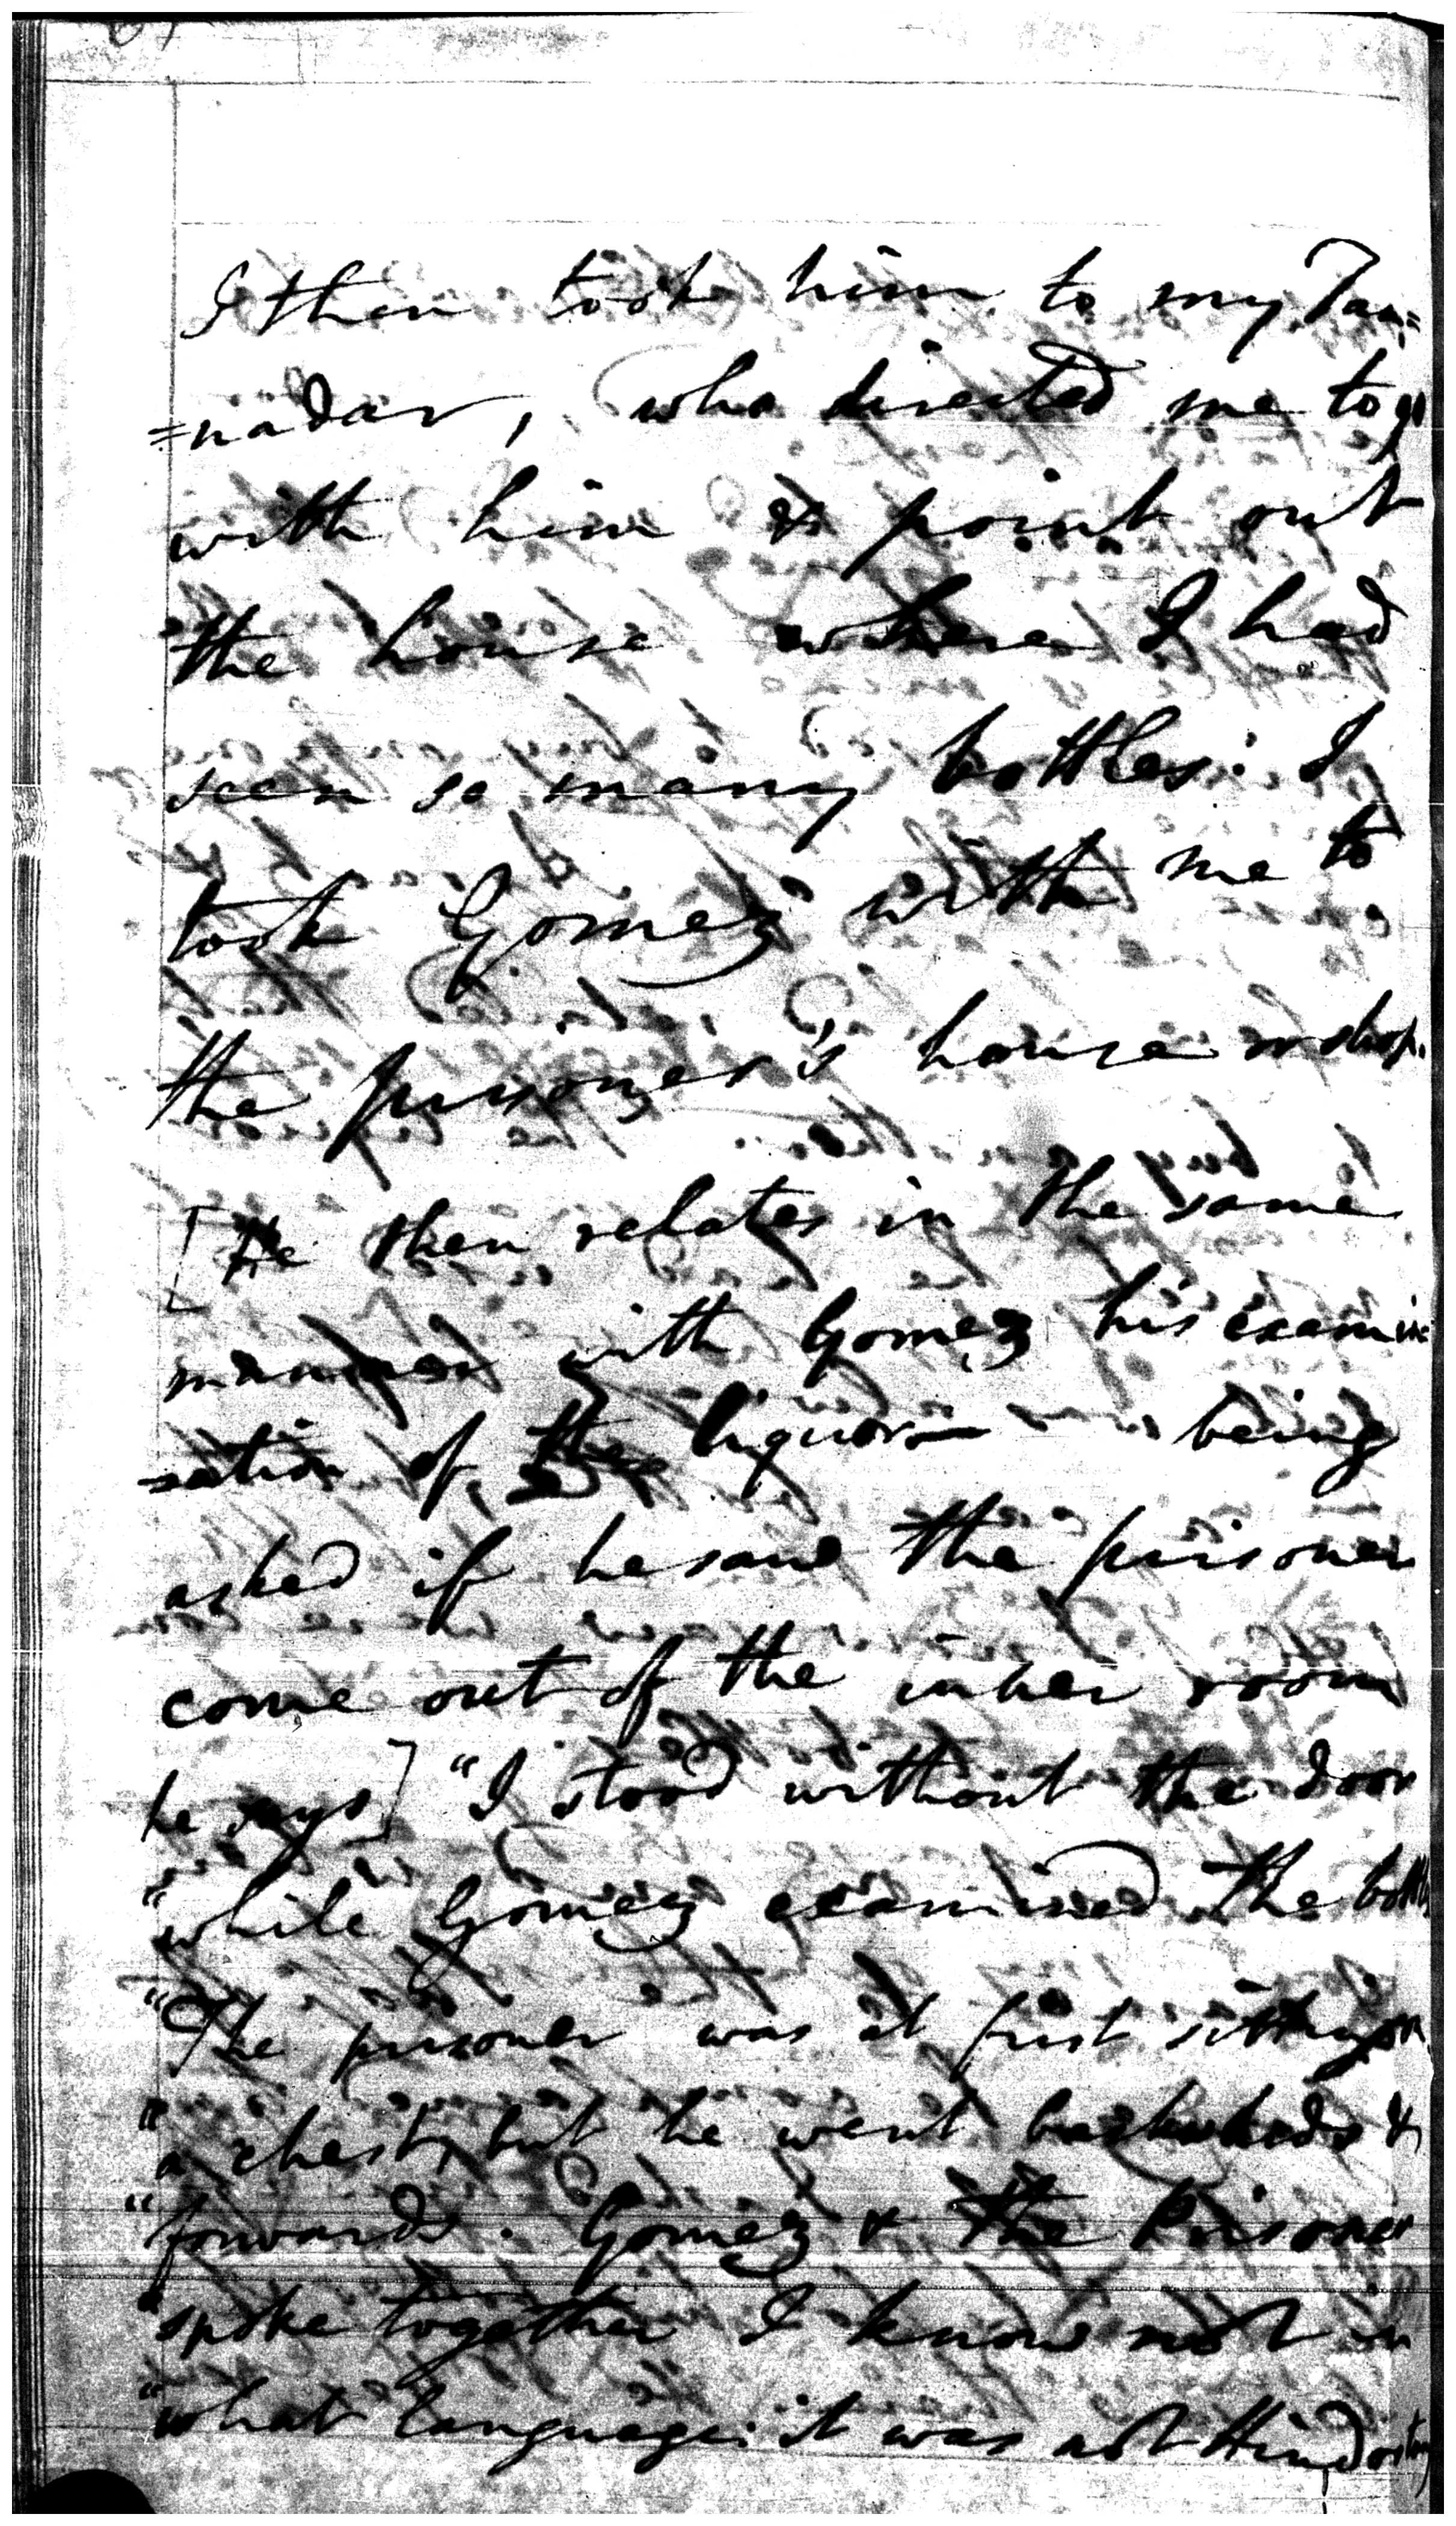 I then took him to my Tan=
=nadar, who directed me to go
with him & point out
the house where I had
seen so many bottles: I
took Gomez with me to
the prisoner's house or shop.
[He then relates in the same
manner with Gomez his exami=
=nation of the liquor being
asked if he saw the prisoner
come out of the inner room
he says] "I stood without the door
"while Gomez examined the bottles
"The prisoner was at first sitting on
"a chest, but he went backwards &
"forwards. Gomez & the Prisoner
"spoke together I know not in
"what language: it was not Hindostany